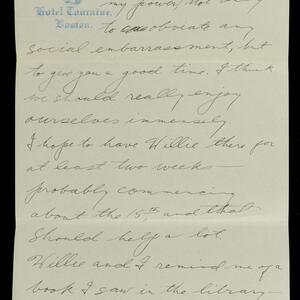 my power, not only
Hotel Touraine,
Boston.
to obviate any
social embarrassment, but
to give you a good time. I think
we should really enjoy
ourselves immensely
I hope to have Willie there for
at least two weeks—
probably commencing
about the 15th and that
should help a lot.
Willie and I remind me of a
book I saw in the library—